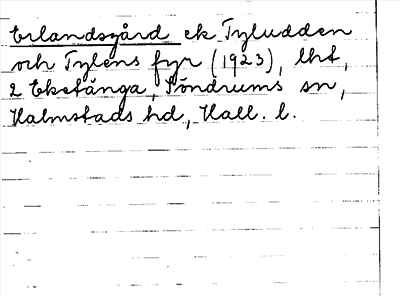 Erlandsgård ek Tyludden
och Tylens fyr (1923), lht,
2 Eketånga, Söndrums sn,
Halmstads hd, Hall. l.